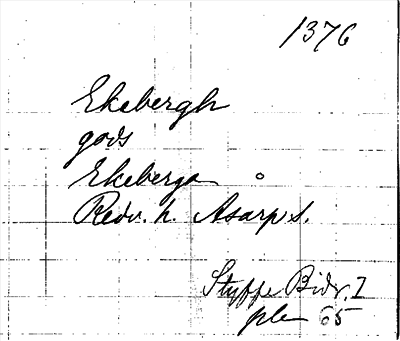 1376
Ekebergh
gods
Ekeberga
Redv. h. Asarp s.
Styffe Bidr. I
ple 65